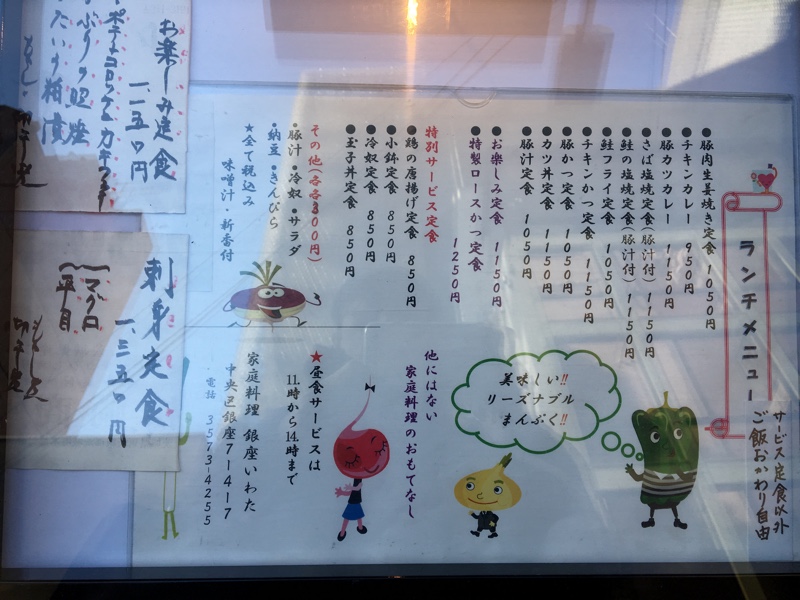 ランチメニュー
サービス定食以外
ご飯おかわり自由
●豚肉生姜焼き定食 1050円
●チキンカレー 950円
●豚カツカレー 1150円
●さば塩焼定食(豚汁付) 1150円
●鮭の塩焼定食(豚汁付) 1150円
●鮭フライ定食 1050円
●チキンかつ定食 1150円
●豚かつ定食 1050円
●カツ丼定食 1050円
●豚汁定食 1050円
●お楽しみ定食 1150円
●特製ロースかつ定食 1250円
特別サービス定食
●鶏の唐揚げ定食 850円
●小鉢定食 850円
●冷奴定食 850円
●玉子丼定食 850円
その他(各各300円)
・豚汁・冷奴・サラダ
・納豆・きんぴら
★全て税込み
味噌汁・新香付
美味しい!!
リーズナブル
まんぷく!!
他にはない
家庭料理のおもてなし
★昼食サービスは
11.時から14.時まで
家庭料理 銀座いわた
中央区銀座7-4-7
電話 3573-4255
お楽しみ定食
一、一五〇円
刺身定食
一、三五〇円
マグロ
平目